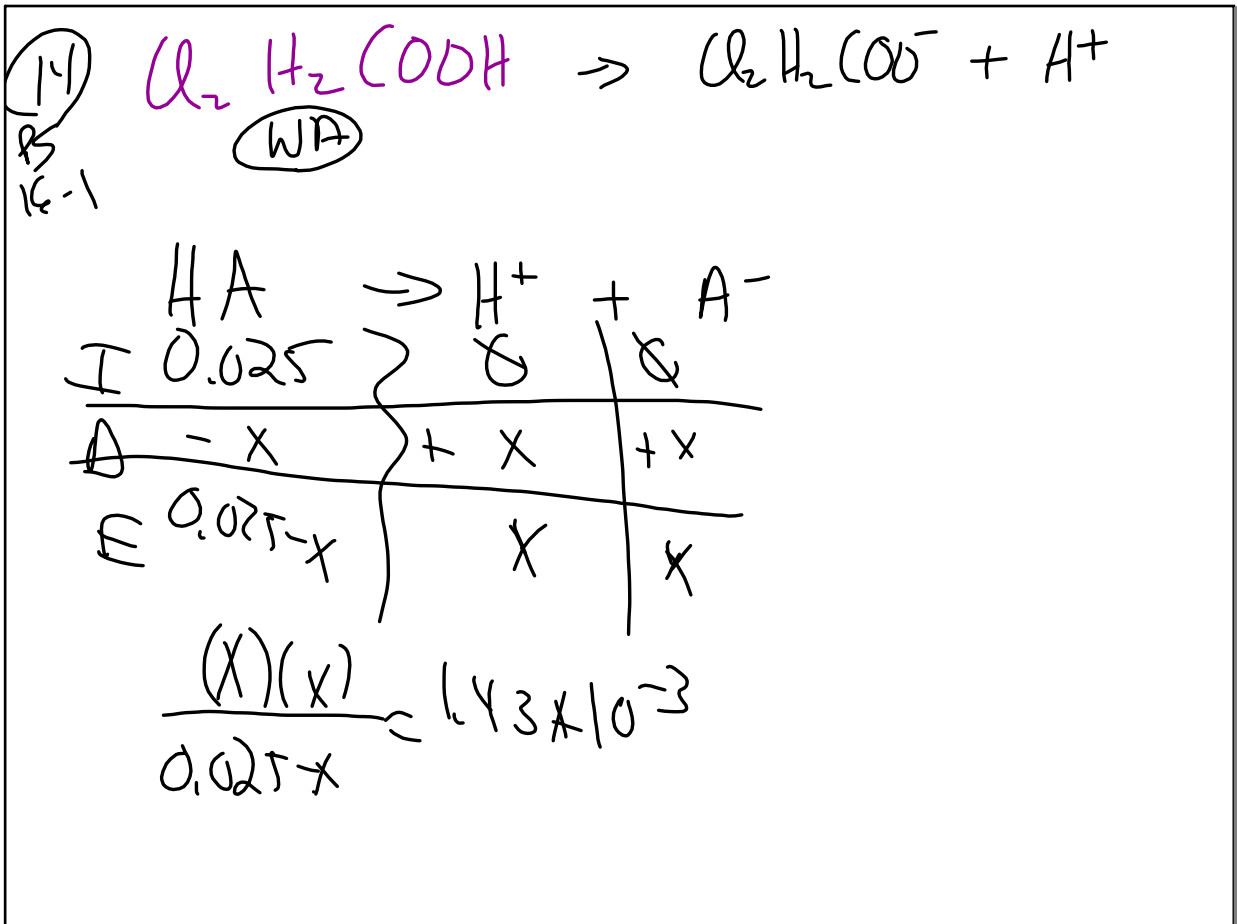 14 Cl₂ H₂ COOH → Cl₂ H₂ COO⁻ + H⁺
WA
PS
16-1
HA → H⁺ + A⁻
I 0.025 0 0
Δ - x + x + x
E 0.025-x x x
(x)(x)
0.025-x = 1.43x10⁻³